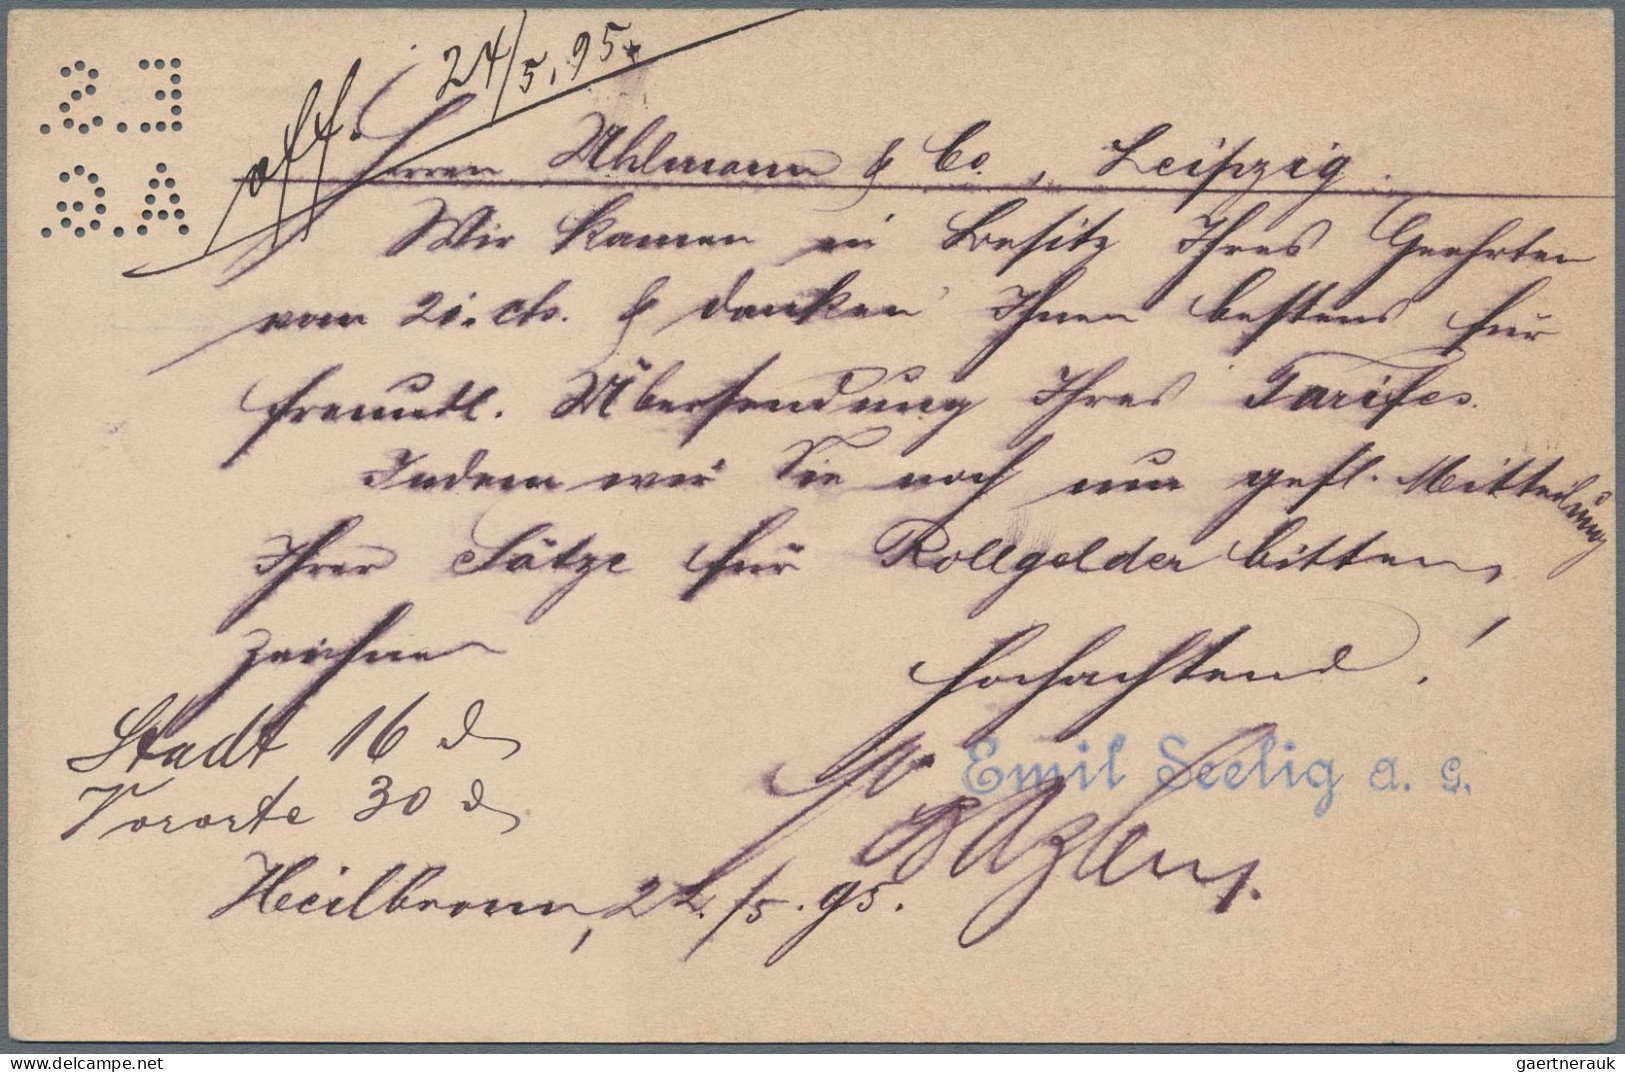 24/5. 95.
off.
E.S.
A.G.
Herren Uhlmann & Co., Leipzig.
Wir kamen in Besitz Ihres Geehrten
vom 21. ds. & danken Ihnen bestens für
freundl. Übersendung Ihres Tarifes.
Indem wir Sie noch um gefl. Mitteilung
Ihrer Sätze für Rollgelder bitten,
zeichnen
Hochachtend!
Stadt 16 d
Vororte 30 d
Emil Seelig a. G.
Heilbronn, 22./5. 95.
gaertnerauk